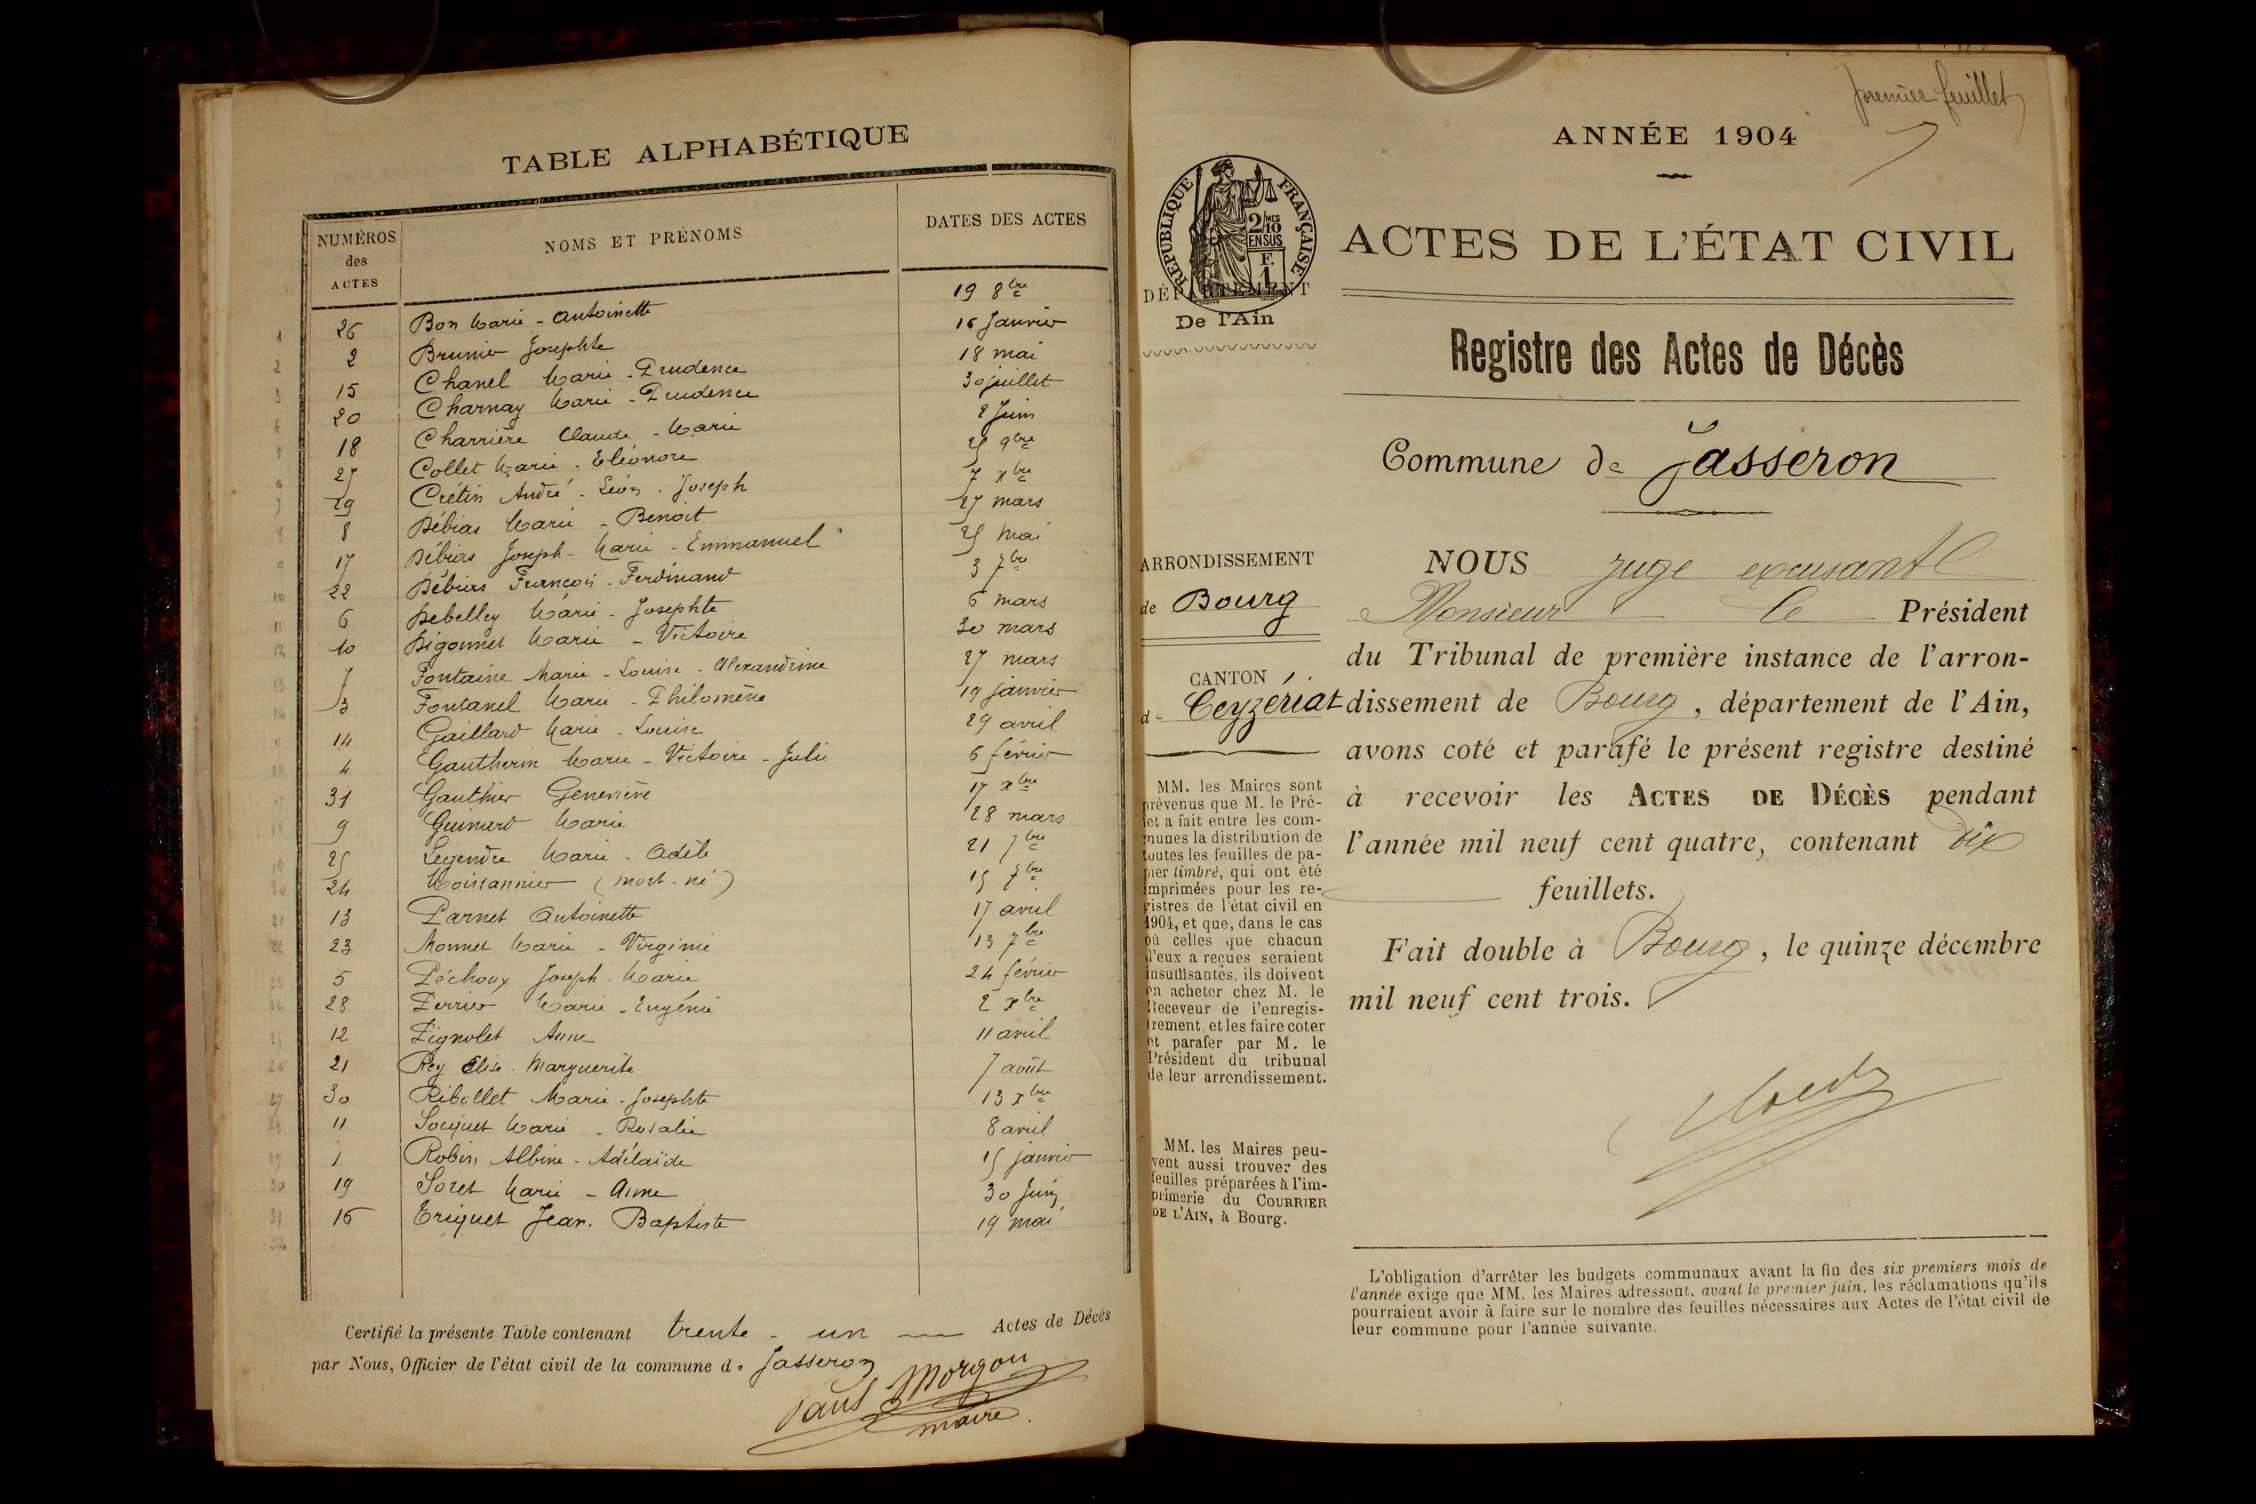 TABLE ALPHABÉTIQUE
NUMÉROS des ACTES NOMS ET PRÉNOMS DATES DES ACTES
1 26 Bon Marie - Antoinette 19 8bre
2 2 Brunier Josephte 16 Janvier
3 15 Chanel Marie - Prudence 18 mai
4 20 Charnay Marie - Prudence 30 juillet
5 18 Charrière Claude - Marie 2 Juin
6 27 Collet Marie - Eléonore 25 9bre
7 29 Crétin André - Léon - Joseph 7 xbre
8 8 Débias Marie - Benoit 27 mars
9 17 Débias Joseph - Marie - Emmanuel 25 Mai
10 22 Débias François - Ferdinand 3 7bre
11 6 Debelley Marie - Josephte 6 mars
12 10 Digonnet Marie - Victoire 30 mars
13 7 Fontaine Marie - Louise - Alexandrine 27 mars
14 3 Fontanel Marie - Philomène 19 janvier
14 Gaillard Marie - Louise 29 avril
16 4 Gautherin Marie - Victoire - Julie 6 février
17 31 Gauthier Geneviève 17 xbre
18 9 Guinard Marie 28 mars
19 25 Legendre Marie - Adèle 21 7bre
20 24 Moissonnier (mort-né) 15 7bre
21 13 Parnet Antoinette 17 avril
22 23 Monnet Marie - Virginie 13 7bre
23 5 Péchoux Joseph - Marie 24 février
24 28 Perrier Marie - Eugénie 2 xbre
25 12 Pignolet Anne 11 avril
26 21 Rey Elise - Marguerite 7 août
27 30 Ribollet Marie - Josephte 13 xbre
28 11 Soquet Marie - Rosalie 8 avril
29 1 Robin Albine - Adélaïde 15 janvier
30 19 Soret Marie - Anne 30 Juin
31 16 Triquet Jean - Baptiste 19 mai
32
Certifié la présente Table contenant trente - un Actes de Décès
par Nous, Officier de l'état civil de la commune de Jasseron
Paul Morgon
maire.
premier feuillet
ANNÉE 1904
RÉPUBLIQUE FRANÇAISE
2/10 MES EN SUS
F. 1
DÉPARTEMENT
De l'Ain
ACTES DE L'ÉTAT CIVIL
Registre des Actes de Décès
Commune de Jasseron
ARRONDISSEMENT
de Bourg
CANTON
de Ceyzériat
MM. les Maires sont
prévenus que M. le Pré-
fet a fait entre les com-
munes la distribution de
toutes les feuilles de pa-
pier timbré, qui ont été
imprimées pour les re-
gistres de l'état civil en
1904, et que, dans le cas
où celles que chacun
d'eux a reçues seraient
insuffisantes, ils doivent
en acheter chez M. le
Receveur de l'enregis-
trement, et les faire coter
et parafer par M. le
Président du tribunal
de leur arrondissement.
MM. les Maires peu-
vent aussi trouver des
feuilles préparées à l'im-
primerie du COURRIER
DE L'AIN, à Bourg.
NOUS juge excusant
Monsieur le Président
du Tribunal de première instance de l'arron-
dissement de Bourg, département de l'Ain,
avons coté et parafé le présent registre destiné
à recevoir les ACTES DE DÉCÈS pendant
l'année mil neuf cent quatre, contenant dix
feuillets.
Fait double à Bourg, le quinze décembre
mil neuf cent trois.
L'obligation d'arrêter les budgets communaux avant la fin des six premiers mois de
l'année exige que MM. les Maires adressent, avant le premier juin, les réclamations qu'ils
pourraient avoir à faire sur le nombre des feuilles nécessaires aux Actes de l'état civil de
leur commune pour l'année suivante.